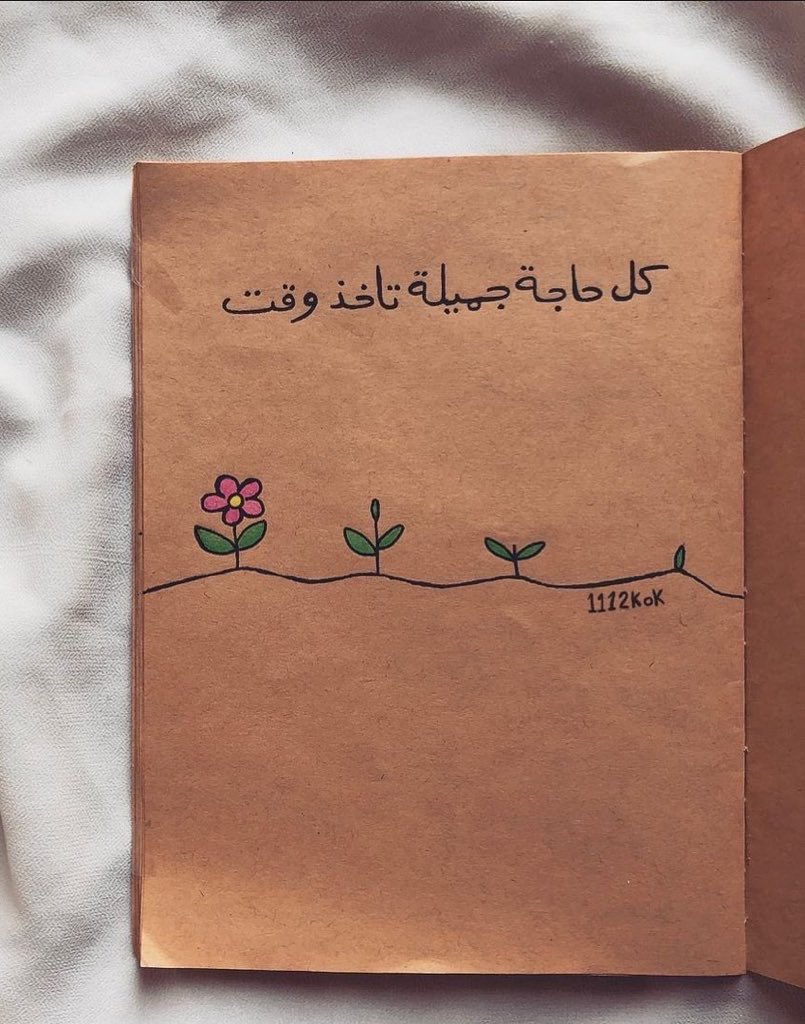 كل حاجة جميلة تاخذ وقت
1112KoK